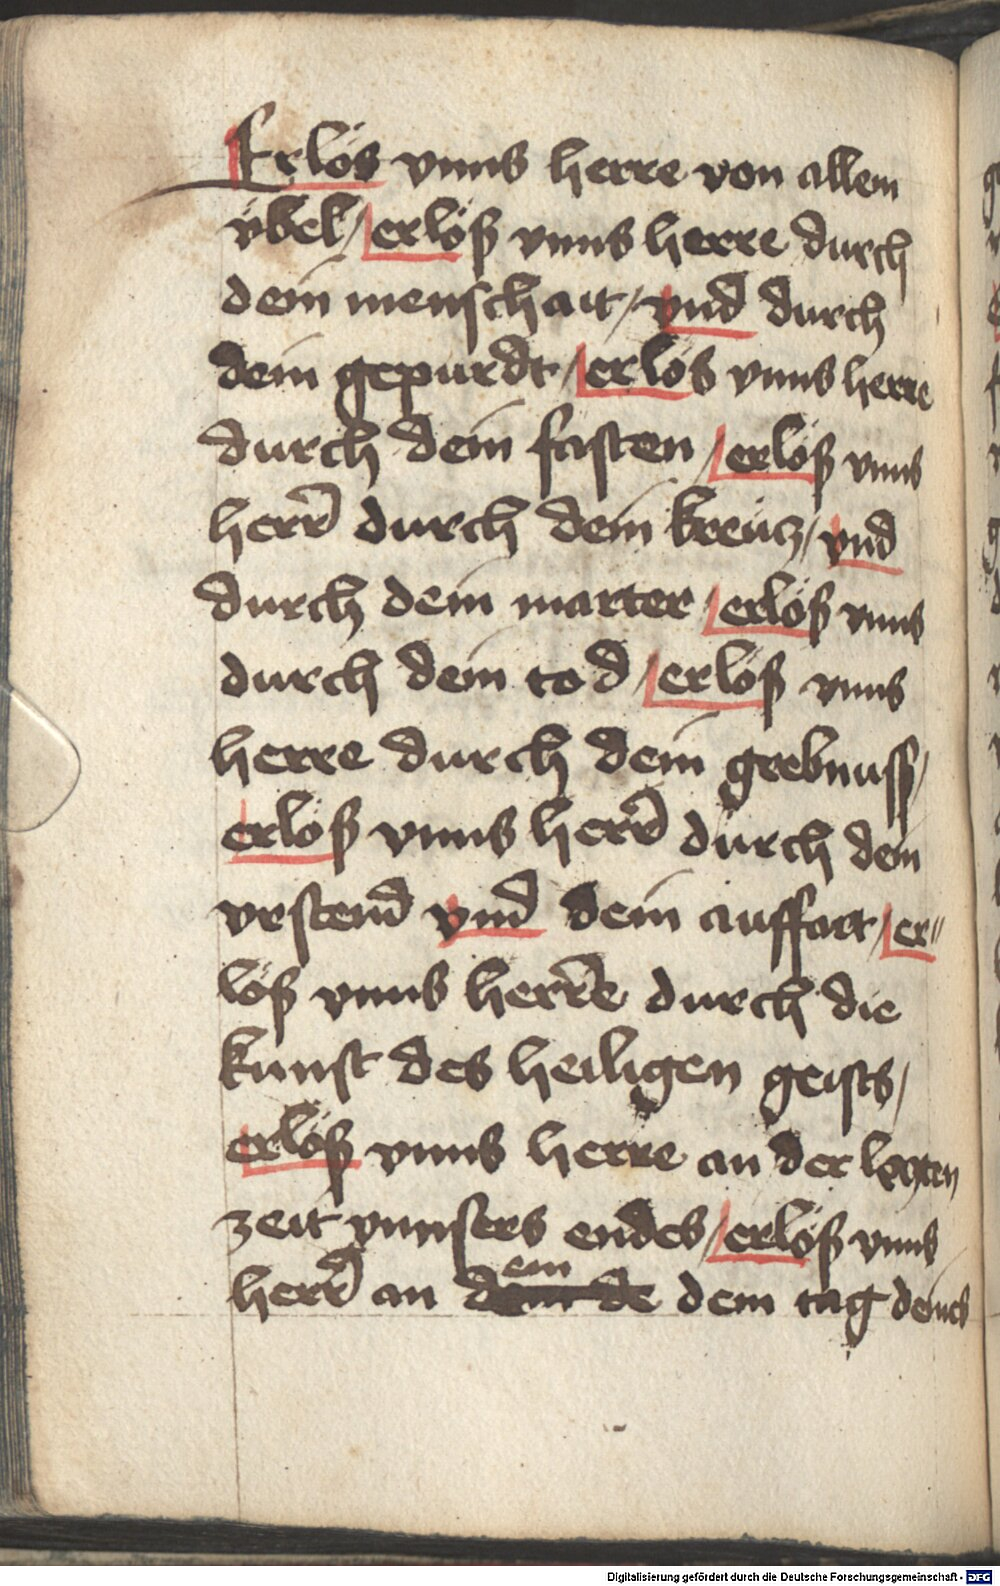 Erlös vnns herre von allem
vbel / erlöß vnns herre durch
dein menschait / vnd durch
dein gepurdt / erlös vnns herre
durch dein fasten / erlöß vnns
herr̄ durch dein kreücz / vnd
durch dein marter / erlöß vnns
durch dein tod / erlöß vnns
herre durch dein grebnuss /
erlöß vnns herr̄ durch dein
vrstend vnd dein auffart / er⸗
löß vnns herr̄e durch die
kunst des heiligen geists /
erlöß vnns herre an der letzten
zeit vnnsers endes / erlöß vnns
herr̄ an dem tag deines
Digitalisierung gefördert durch die Deutsche Forschungsgemeinschaft - DFG